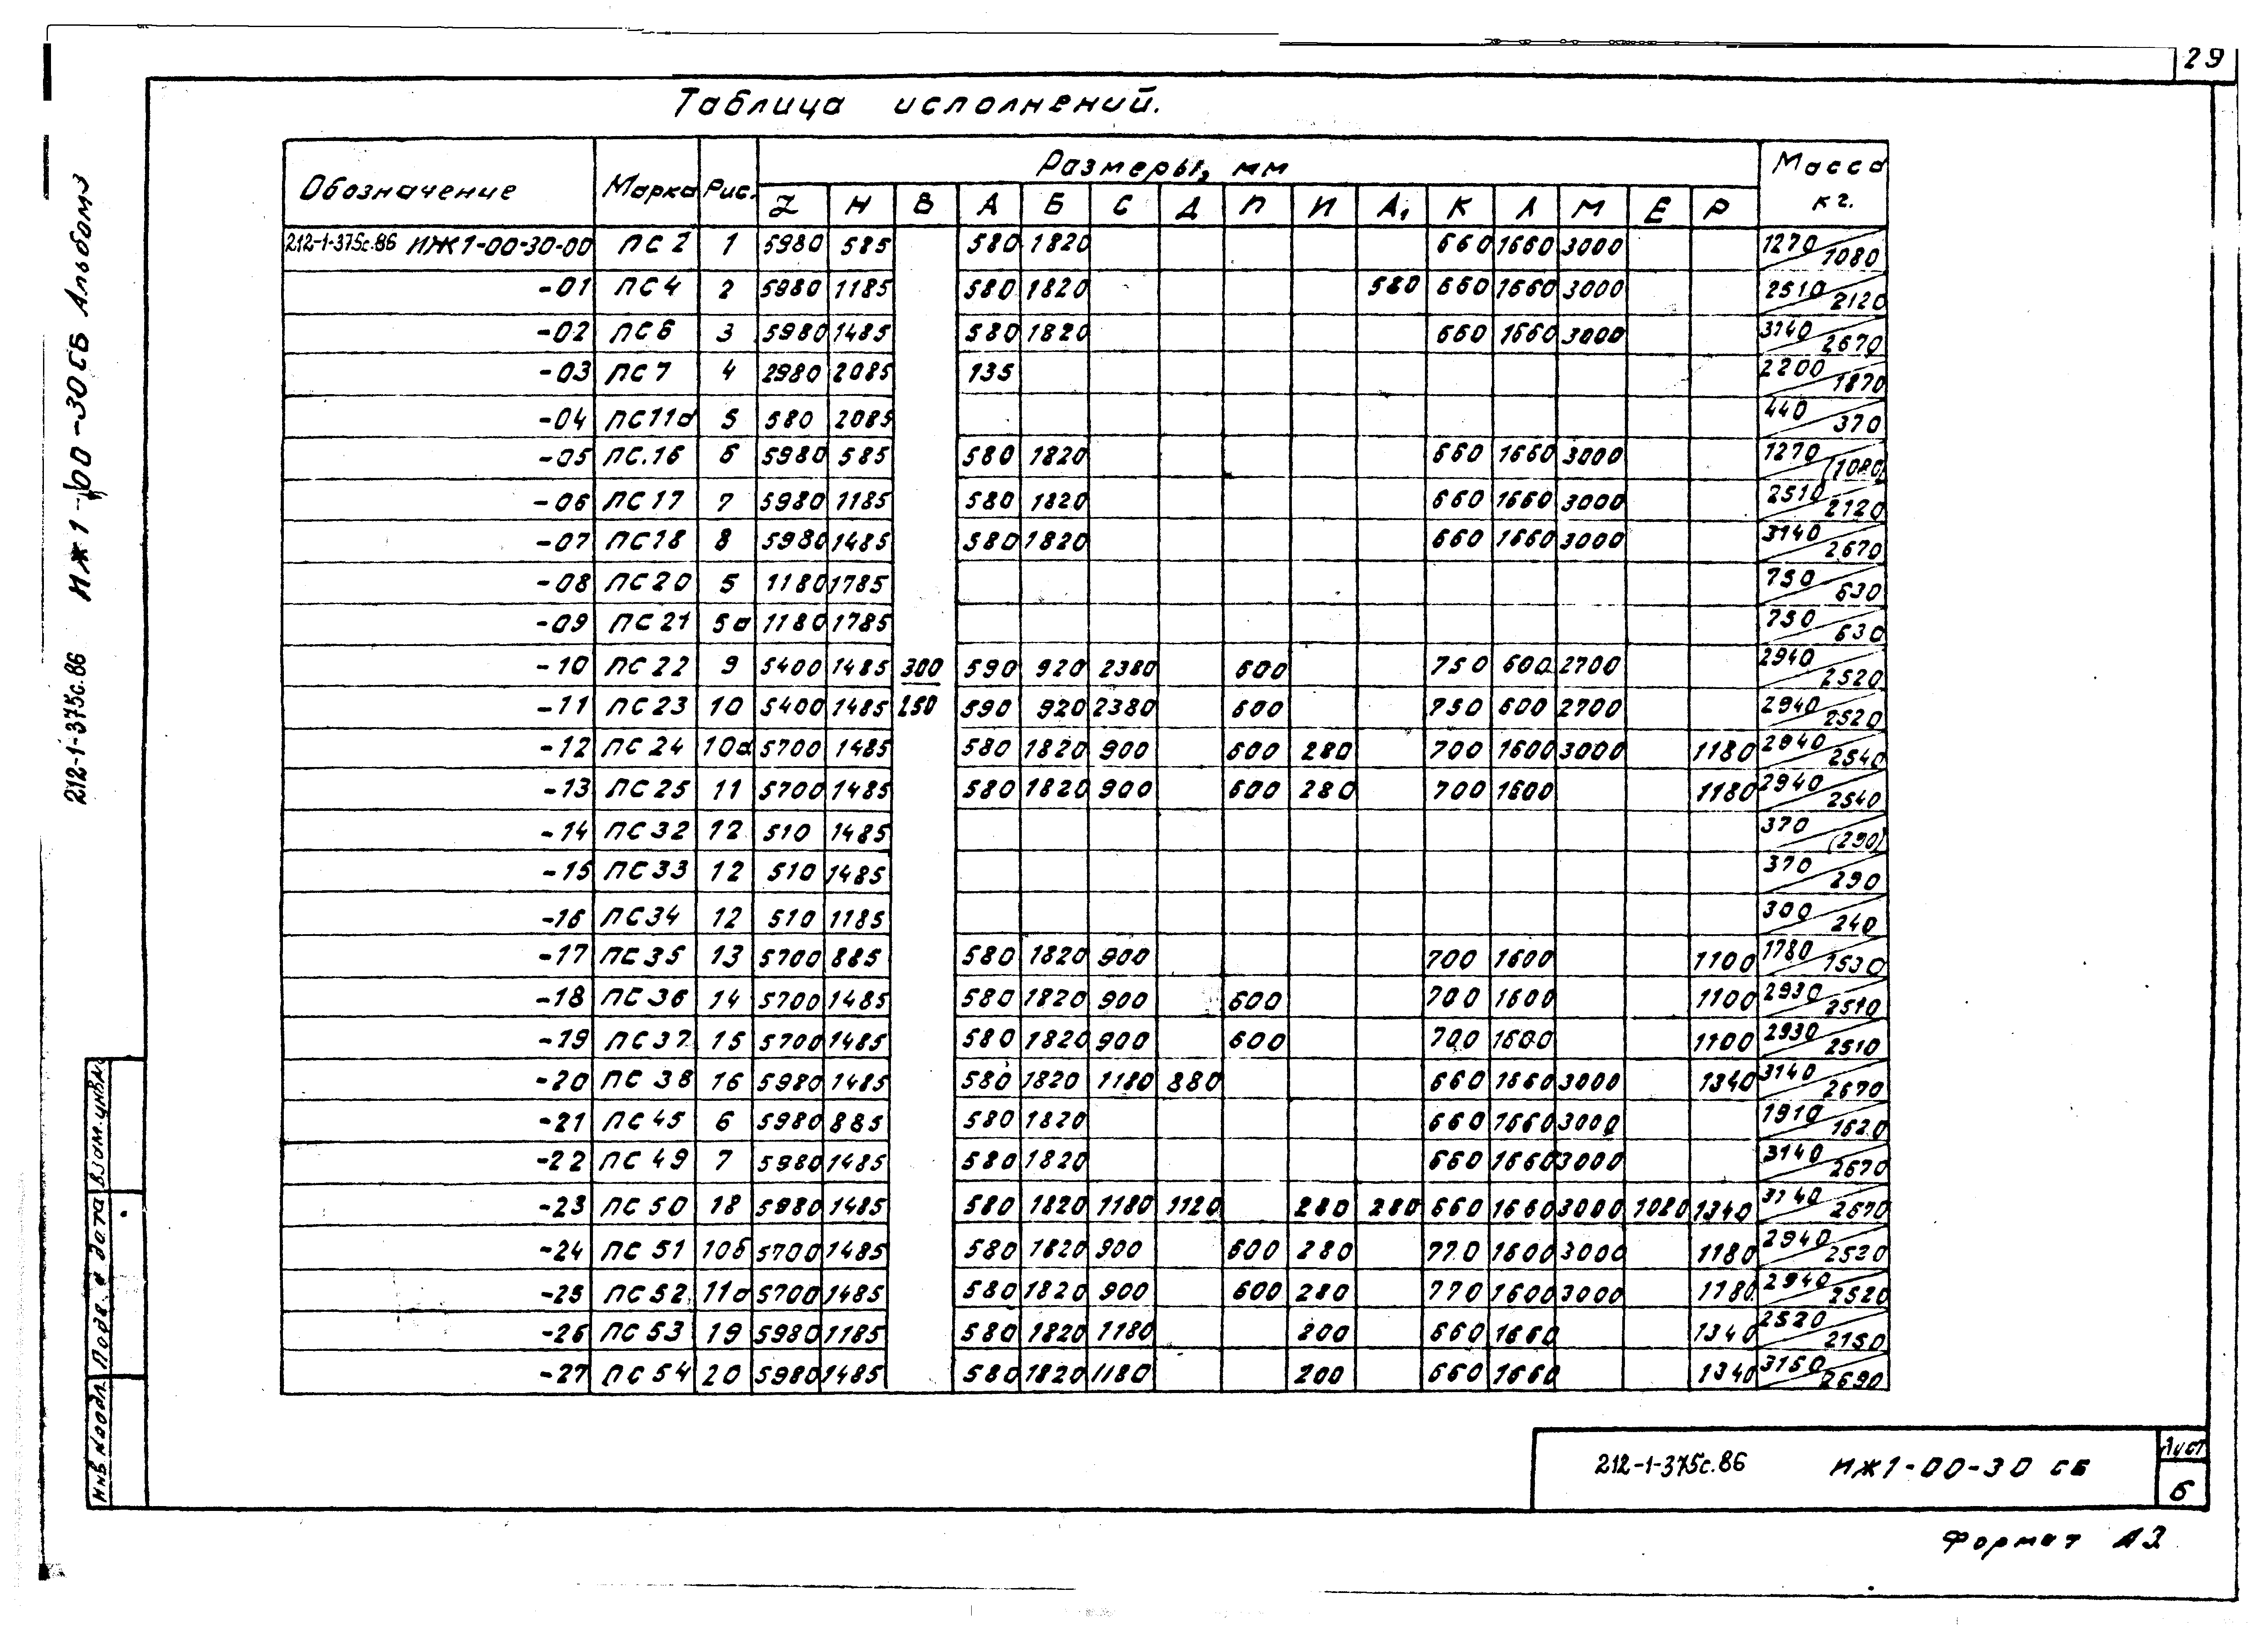 29
Таблица исполнений.
Обозначение Марка Рис. Размеры, мм Масса кг.
L H В А Б С Д П И А₁ К Л М Е Р
212-1-375с.86 ИЖ1-00-30-00 ПС 2 1 5980 585 580 1820 660 1660 3000 1270/1080
-01 ПС 4 2 5980 1185 580 1820 580 660 1660 3000 2510/2120
-02 ПС 6 3 5980 1485 580 1820 660 1660 3000 3140/2670
-03 ПС 7 4 2980 2085 135 2200/1870
-04 ПС11а 5 580 2085 440/370
-05 ПС.16 6 5980 585 580 1820 660 1660 3000 1270/(1080)
-06 ПС 17 7 5980 1185 580 1820 660 1660 3000 2510/2120
-07 ПС18 8 5980 1485 580 1820 660 1660 3000 3140/2670
-08 ПС20 5 1180 1785 750/630
-09 ПС21 5а 1180 1785 750/630
-10 ПС 22 9 5400 1485 300 590 920 2380 600 750 600 2700 2940/2520
-11 ПС23 10 5400 1485 250 590 920 2380 600 750 600 2700 2940/2520
-12 ПС 24 10а 5700 1485 580 1820 900 600 280 700 1600 3000 1180 2940/2540
-13 ПС 25 11 5700 1485 580 1820 900 600 280 700 1600 1180 2940/2540
-14 ПС 32 12 510 1485 370/(290)
-15 ПС 33 12 510 1485 370/290
-16 ПС34 12 510 1185 300/240
-17 ПС 35 13 5700 885 580 1820 900 700 1600 1100 1780/1530
-18 ПС 36 14 5700 1485 580 1820 900 600 700 1600 1100 2930/2510
-19 ПС 37 15 5700 1485 580 1820 900 600 700 1600 1100 2930/2510
-20 ПС 38 16 5980 1485 580 1820 1180 880 660 1660 3000 1340 3140/2670
-21 ПС 45 6 5980 885 580 1820 660 1660 3000 1910/1620
-22 ПС 49 7 5980 1485 580 1820 660 1660 3000 3140/2670
-23 ПС 50 18 5980 1485 580 1820 1180 1120 280 280 660 1660 3000 1020 1340 3140/2670
-24 ПС 51 10б 5700 1485 580 1820 900 600 280 770 1600 3000 1180 2940/2520
-25 ПС 52 11а 5700 1485 580 1820 900 600 280 770 1600 3000 1180 2940/2520
-26 ПС 53 19 5980 1185 580 1820 1180 200 660 1660 1340 2520/2150
-27 ПС 54 20 5980 1485 580 1820 1180 200 660 1660 1340 3150/2690
212-1-375с.86 ИЖ1-00-30СБ Альбом 3
Инв. № подл. Подп. и дата Взам. инв. №
212-1-375с.86 ИЖ1-00-30 СБ
Лист
6
Формат А3